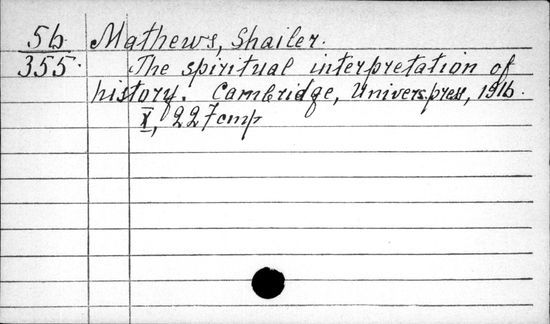 56 Mathews, Shailer.
355. The spiritual interpretation of
history. Cambridge, Univers.press, 1916.
X, 227 стр